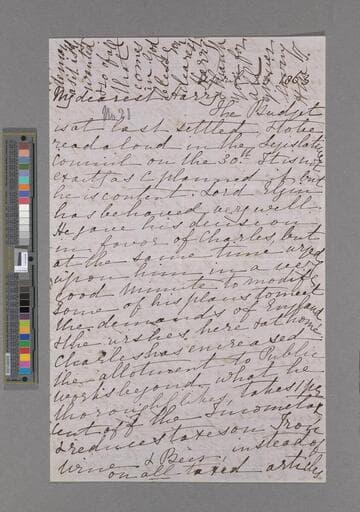 1863
My dearest Harry
The Budget
is at last settled & to be
read aloud in the Legislative
Council on the 30th. It is not
exactly as C planned it, but
he is content. Lord Elgin
has behaved very well.
He gave his decision
in favor of Charles, but
at the same time urged
upon him in a very
good minute to modify
some of his plans to meet
the demands of England
& the wishes here & at home
Charles has encreased
the allotment to Public
works beyond what he
thoroughly likes, takes 1 per
cent off the Income tax
& reduces taxes on Iron
Wine & Beer, instead of
on all taxed articles